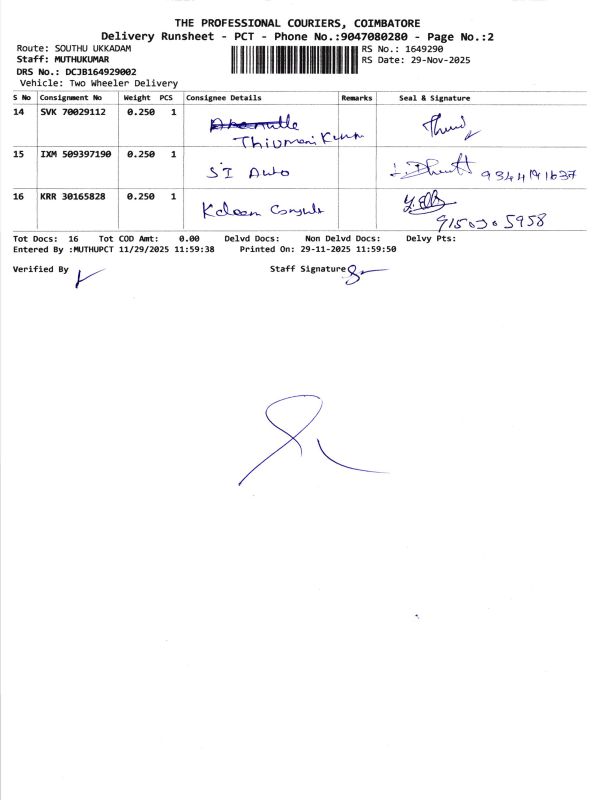 THE PROFESSIONAL COURIERS, COIMBATORE
Delivery Runsheet - PCT - Phone No.:9047080280 - Page No.:2
Route: SOUTHU UKKADAM RS No.: 1649290
Staff: MUTHUKUMAR RS Date: 29-Nov-2025
DRS No.: DCJB164929002
Vehicle: Two Wheeler Delivery
S No Consignment No Weight PCS Consignee Details Remarks Seal & Signature
14 SVK 70029112 0.250 1
15 IXM 509397190 0.250 1 SI Auto
16 KRR 30165828 0.250 1 Kaleem
Tot Docs: 16 Tot COD Amt: 0.00 Delvd Docs: Non Delvd Docs: Delvy Pts:
Entered By :MUTHUPCT 11/29/2025 11:59:38 Printed On: 29-11-2025 11:59:50
Verified By Staff Signature